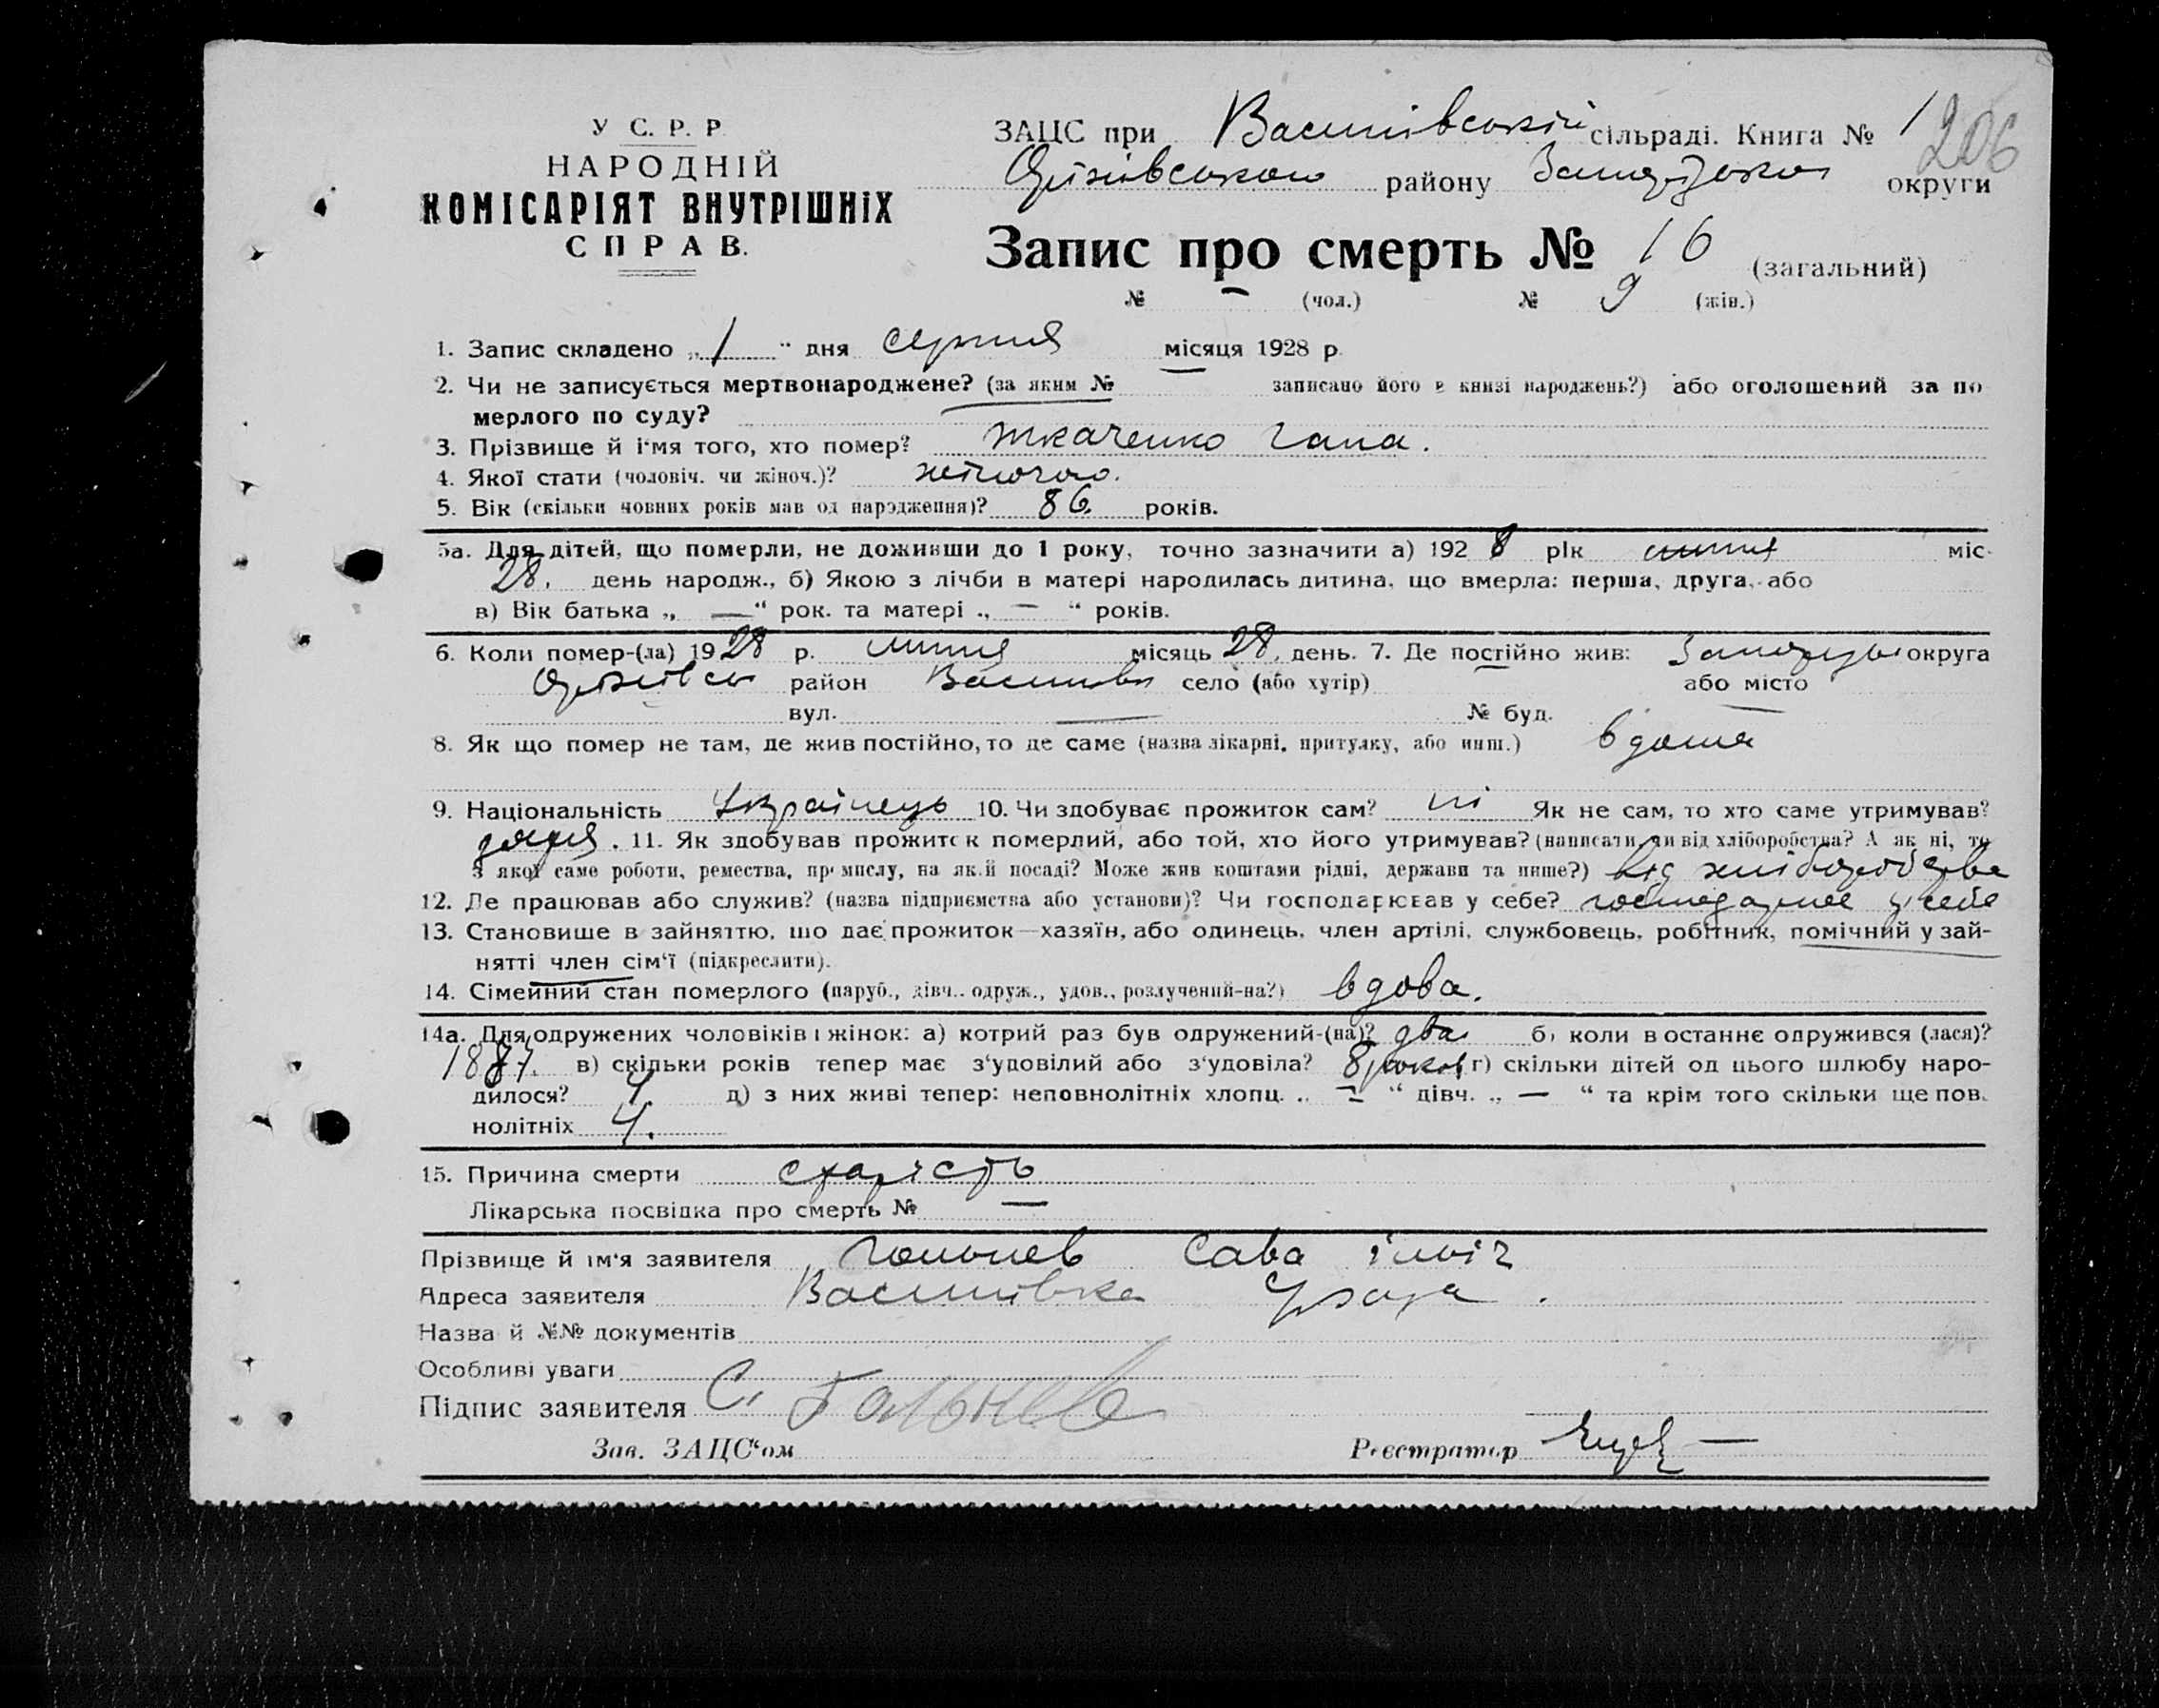 У С. Р. Р
НАРОДНІЙ
КОМІСАРІЯТ ВНУТРІШНіХ
СПРАВ.
ЗАЦС при Василівській сільраді. Книга № 1
206
Оріхівського району Запорізької округи
Запис про смерть № 16 (загальний)
№ — (чол.) № 9 (жін.)
1. Запис складено „ 1 “ дня серпня місяця 1928 р.
2. Чи не записується мертвонароджене? (за яким № — записано його в книзі народжень?) або оголошений за по
мерлого по суду?
3. Прізвище й ім'я того, хто помер? Ткаченко Гапа.
4. Якої стати (чоловіч. чи жіноч.)? жіночого.
5. Вік (скільки повних років мав од народження)? 86 років.
5а. Для дітей, що померли, не доживши до 1 року, точно зазначити а) 1928 рік липня міс.
28. день народж., б) Якою з лічби в матері народилась дитина, що вмерла: перша, друга, або
в) Вік батька „ — “ рок. та матері „ — “ років.
6. Коли помер-(ла) 1928 р. липня місяць 28, день. 7. Де постійно жив: округа
район село (або хутір) або місто —
вул. — № буд.
8. Як що помер не там, де жив постійно, то де саме (назва лікарні, притулку, або инш.) вдома
9. Національність Українець 10. Чи здобуває прожиток сам? ні Як не сам, то хто саме утримував?
. 11. Як здобував прожиток померлий, або той, хто його утримував? (написати, чи від хліборобства? А як ні, то
з якої саме роботи, ремества, промислу, на якій посаді? Може жив коштами рідні, держави та инше?) від хліборобства
12. Де працював або служив? (назва підприємства або установи)? Чи господарював у себе? у себе
13. Становище в зайняттю, що дає прожиток—хазяїн, або одинець, член артілі, службовець, робітник, помічний у зай-
нятті член сім'ї (підкреслити).
14. Сімейний стан померлого (паруб., дівч., одруж., удов., розлучений-на?) вдова.
14а. Для одружених чоловіків і жінок: а) котрий раз був одружений-(на)? два б) коли в останнє одружився (лася)?
1887. в) скільки років тепер має з'удовілий або з'удовіла? 8 років г) скільки дітей од цього шлюбу наро-
дилося? 4 д) з них живі тепер: неповнолітніх хлопц. „ — “ дівч. „ — “ та крім того скільки ще пов.
нолітніх 4.
15. Причина смерти старість
Лікарська посвідка про смерть № —
Прізвище й ім'я заявителя Сава
Адреса заявителя Василівка
Назва й №№ документів
Особливі уваги
Підпис заявителя С.
Зав. ЗАЦС'ом Реєстратор